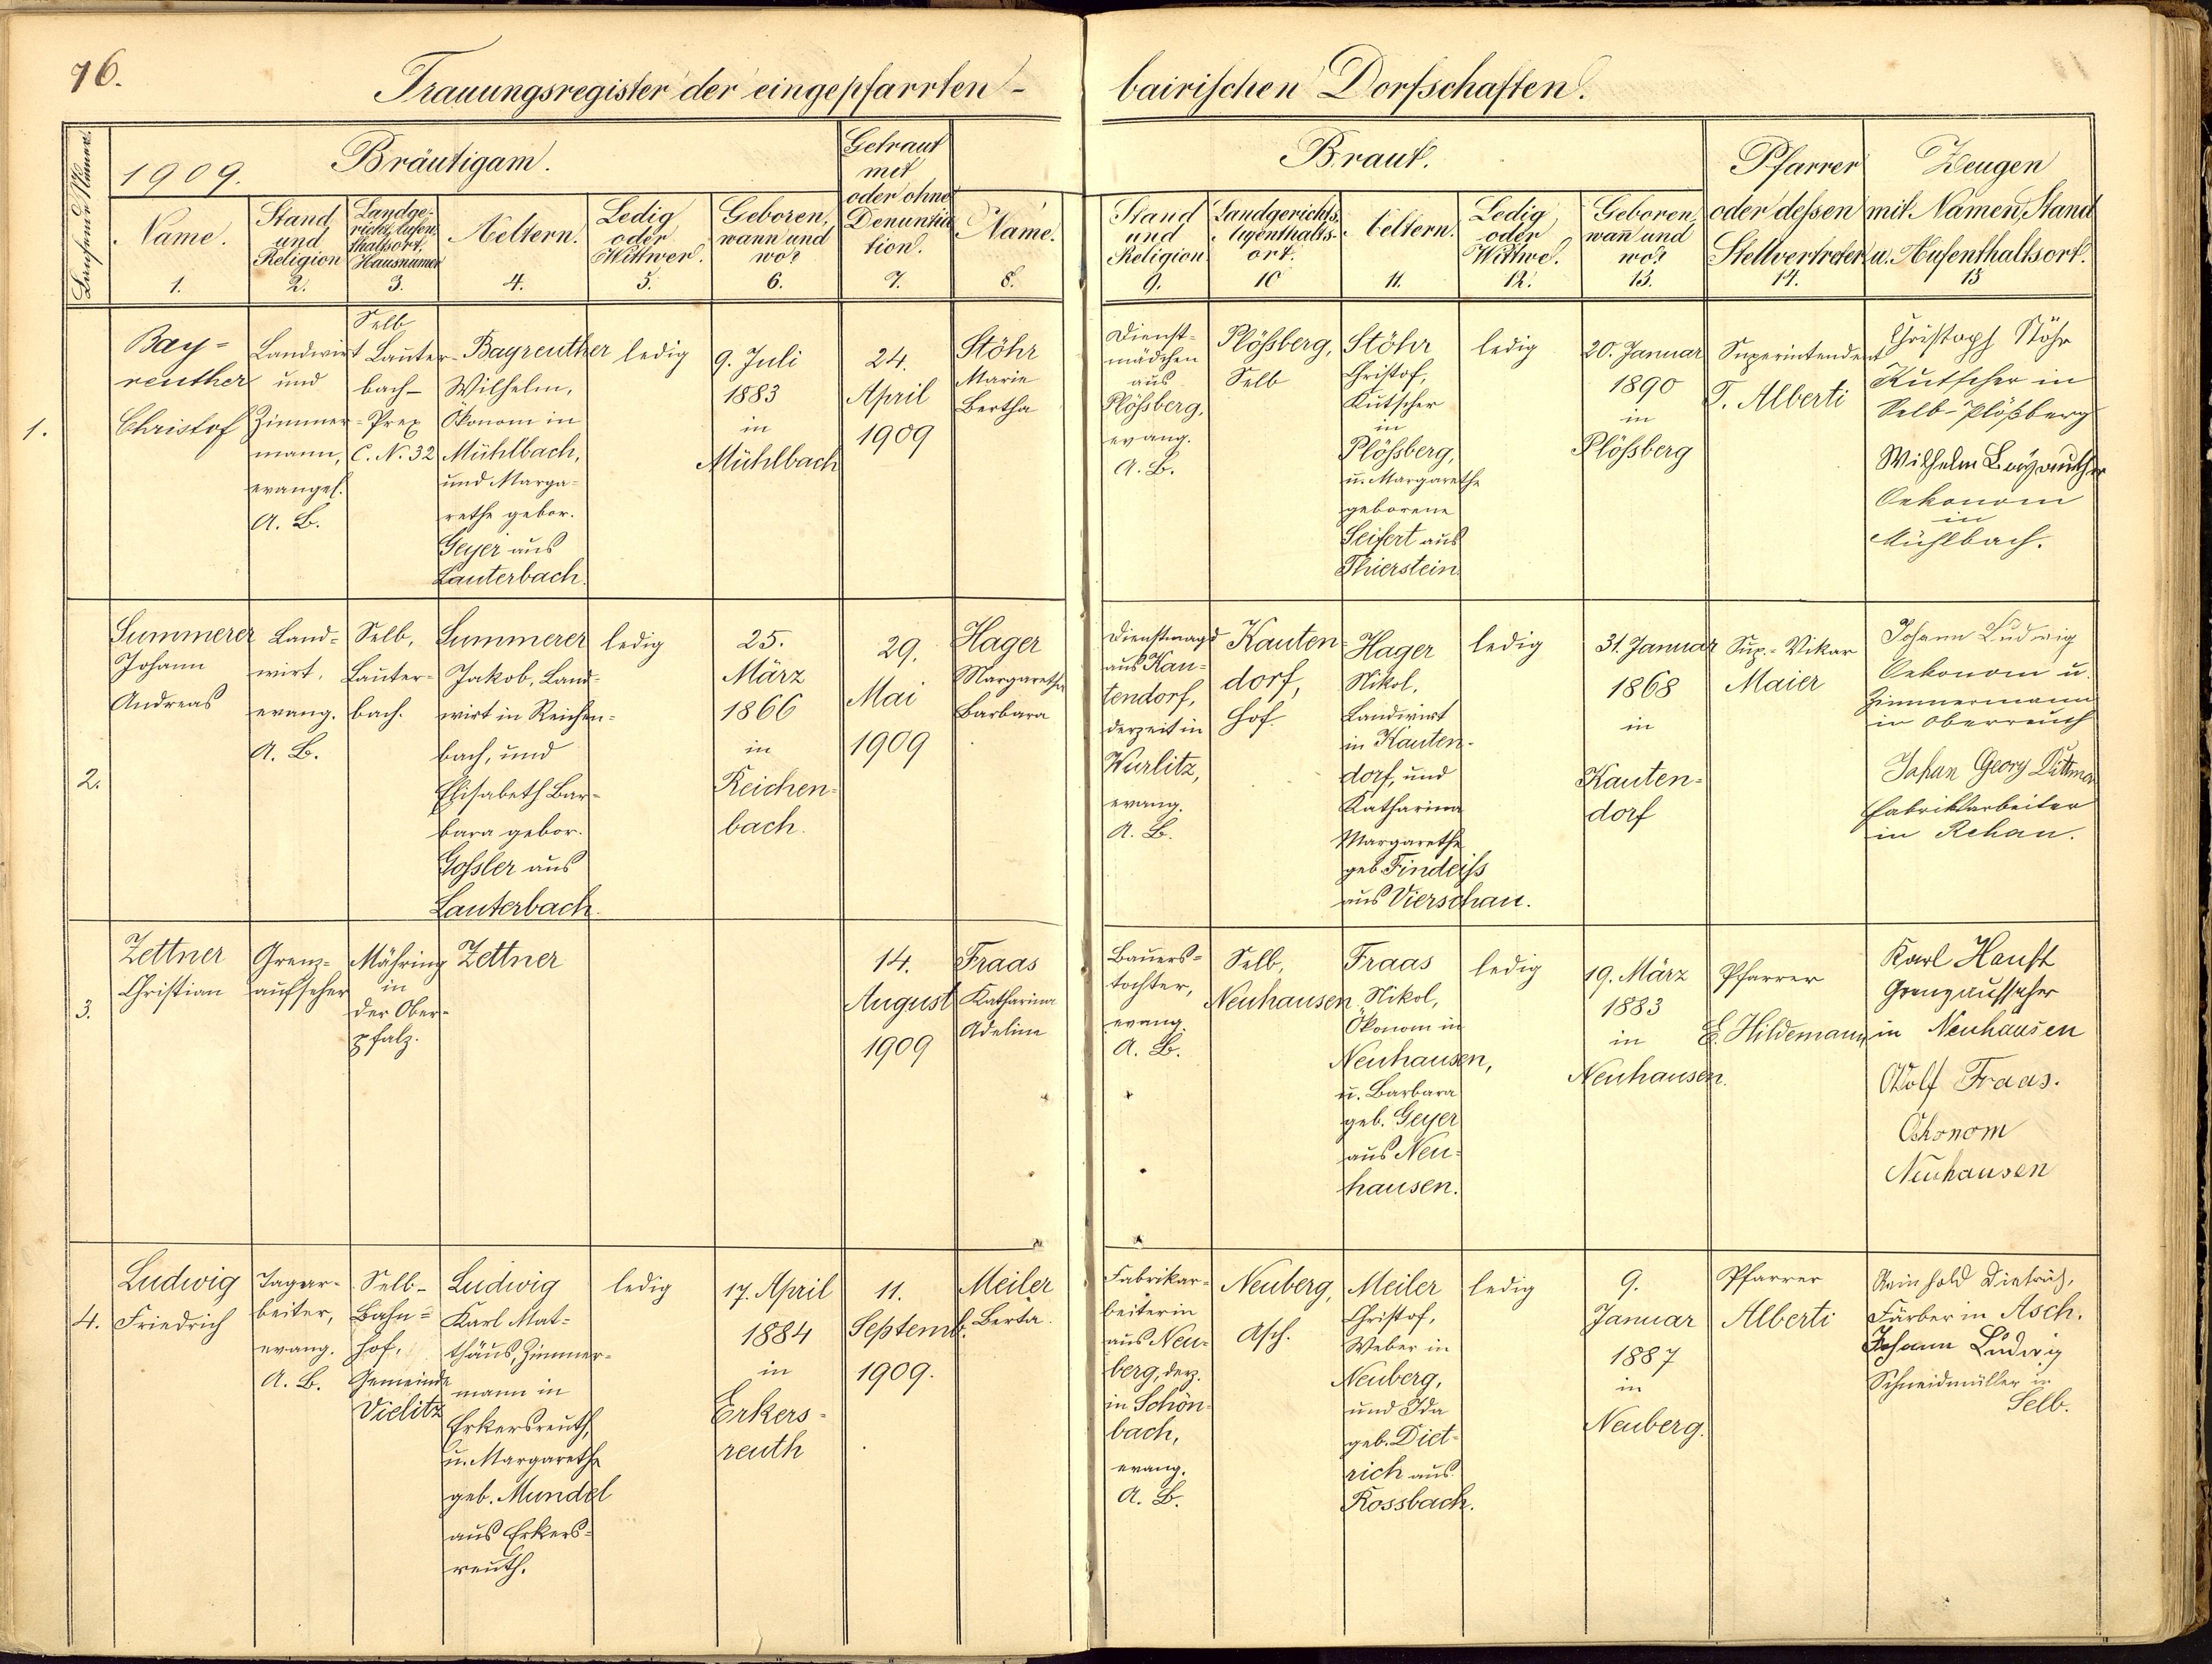 76.
Trauungsregister der eingepfarrten -
bairischen Dorfschaften.
Laufende Numer.
1909.
Bräutigam.
Getraut
mit
oder ohne
Denuntia
tion.
7.
Name.
1.
Stand
und
Religion
2.
Landge-
richt, Aufen-
thaltsort,
Hausnumer
3.
Aeltern.
4.
Ledig
oder
Wittwer.
5.
Geboren,
wann und
wo?
6.
Name.
8.
Braut.
Stand
und
Religion
9.
Landgerichts-
Aufenthalts-
ort.
10
Aeltern.
11.
Ledig
oder
Wittwe.
12.
Geboren,
wañ und
wo?
13.
Pfarrer
oder dessen
Stellvertreter
14.
Zeugen
mit Namen, Stand
u. Aufenthaltsort.
15
1.
Bay-
reuther
Christof
Landwirt
und
Zimmer-
mann,
evangel.
A. B.
Selb
Lauter-
bach-
Prex
C. N. 32
Bayreuther
Wilhelm,
Ökonom in
Mühlbach,
und Marga-
rethe gebor.
Geyer aus
Lauterbach.
ledig
9. Juli
1883
in
Mühlbach
24.
April
1909
Stöhr
Marie
Bertha
Dienst-
mädchen
aus
Plößberg,
evang.
A. B.
Plößberg,
Selb
Stöhr
Christof,
Kutscher
in
Plößberg,
u. Margarethe
geborene
Seifert aus
Thierstein.
ledig
20. Januar
1890
in
Plößberg
Superintendent
T. Alberti
Christoph Stöhr
Kutscher in
Selb-Plößberg
Wilhelm Bayreuther
Oekonom
in
Mühlbach.
2.
Summerer
Johann
Andreas
Land-
wirt,
evang.
A. B.
Selb,
Lauter-
bach.
Summerer
Jakob, Land-
wirt in Reichen-
bach, und
Elisabeth Bar-
bara gebor.
Gossler aus
Lauterbach.
ledig
25.
März
1866
in
Reichen-
bach.
29.
Mai
1909
Hager
Margaretha
Barbara
Dienstmagd
aus Kau-
tendorf,
derzeit in
Wurlitz,
evang.
A. B.
Kauten-
dorf,
Hof
Hager
Nikol,
Landwirt
in Kauten-
dorf, und
Katharina
Margarethe
geb. Findeiss
aus Vierschau.
ledig
31. Januar
1868
in
Kauten-
dorf
Sup.-Vikar
Maier
Johann Ludwig
Oekonom u.
Zimmermann
in Oberreuth
Johan Georg Dittmar
Fabrikarbeiter
in Rehau.
3.
Zettner
Christian
Grenz-
aufseher
Mähring
in
der Ober-
pfalz.
Zettner
14.
August
1909
Fraas
Katharina
Adeline
Bauers-
tochter,
evang.
A. B.
Selb,
Neuhausen
Fraas
Nikol,
Ökonom in
Neuhausen,
u. Barbara
geb. Geyer
aus Neu-
hausen.
ledig
19. März
1883
in
Neuhausen.
Pfarrer
E. Hildemann
Karl Hanft
Grenzaufseher
in Neuhausen
Adolf Fraas.
Ökonom
Neuhausen
4.
Ludwig
Friedrich
Tagar-
beiter,
evang.
A. B.
Selb-
Bahn-
hof,
Gemeinde
Vielitz
Ludwig
Karl Mat-
thäus, Zimmer-
mann in
Erkersreuth,
u. Margarethe
geb. Mundel
aus Erkers-
reuth.
ledig
17. April
1884
in
Erkers-
reuth
11.
Septemb.
1909.
Meiler
Berta.
Fabrikar-
beiterin
aus Neu-
berg, derz.
in Schön-
bach,
evang.
A. B.
Neuberg,
Asch.
Meiler
Christof,
Weber in
Neuberg,
und Ida
geb. Diet-
rich aus
Rossbach.
ledig
9.
Januar
1887
in
Neuberg.
Pfarrer
Alberti
Reinhold Dietrich,
Färber in Asch.
Johann Ludwig
Schneidmüller in
Selb.